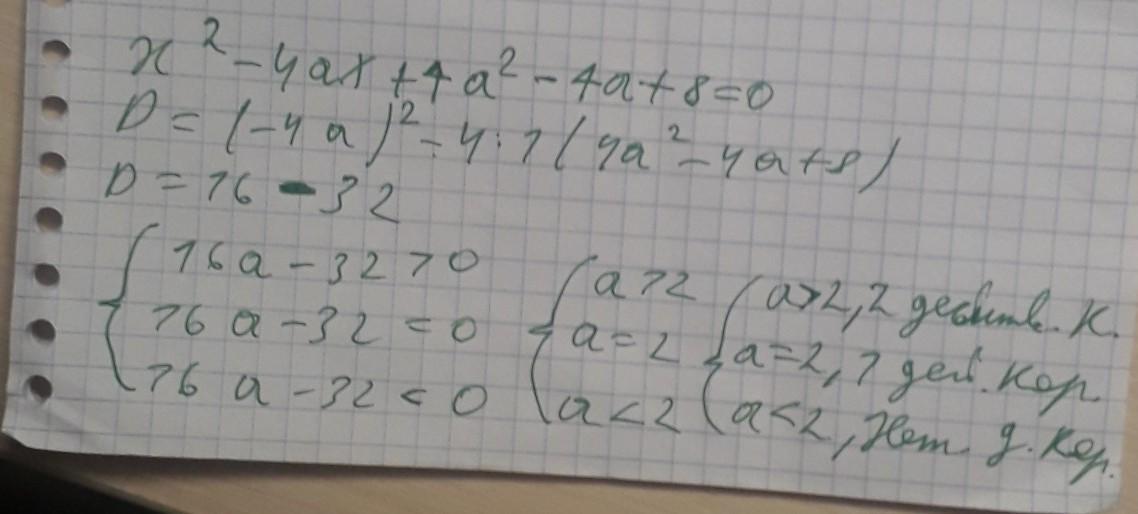 x² - 4ax + 4a² - 4a + 8 = 0
D = (-4a)² - 4·1(4a² - 4a + 8)
D = 16 - 32
{ 16a - 32 > 0
16a - 32 = 0
16a - 32 < 0
{ a > 2
a = 2
a < 2
{ a > 2, 2 действ. к.
a = 2, 1 дей. кор.
a < 2, Нет д. кор.